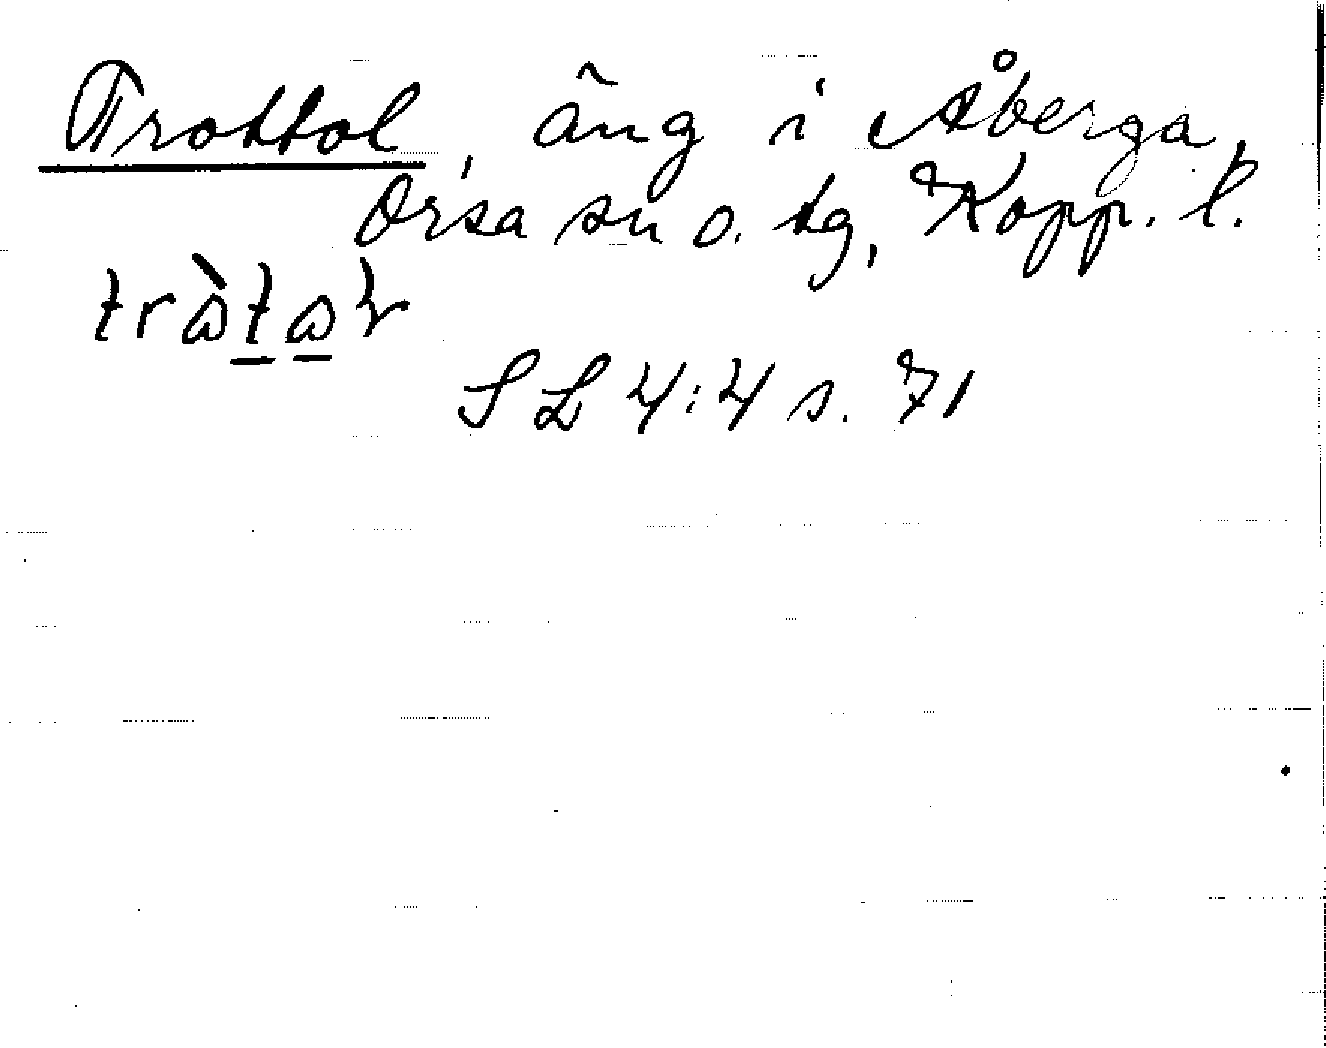 Trottol, äng i Åberga,
Orsa sn o. tg, Kopp. l.
SL 4:4 s. 71